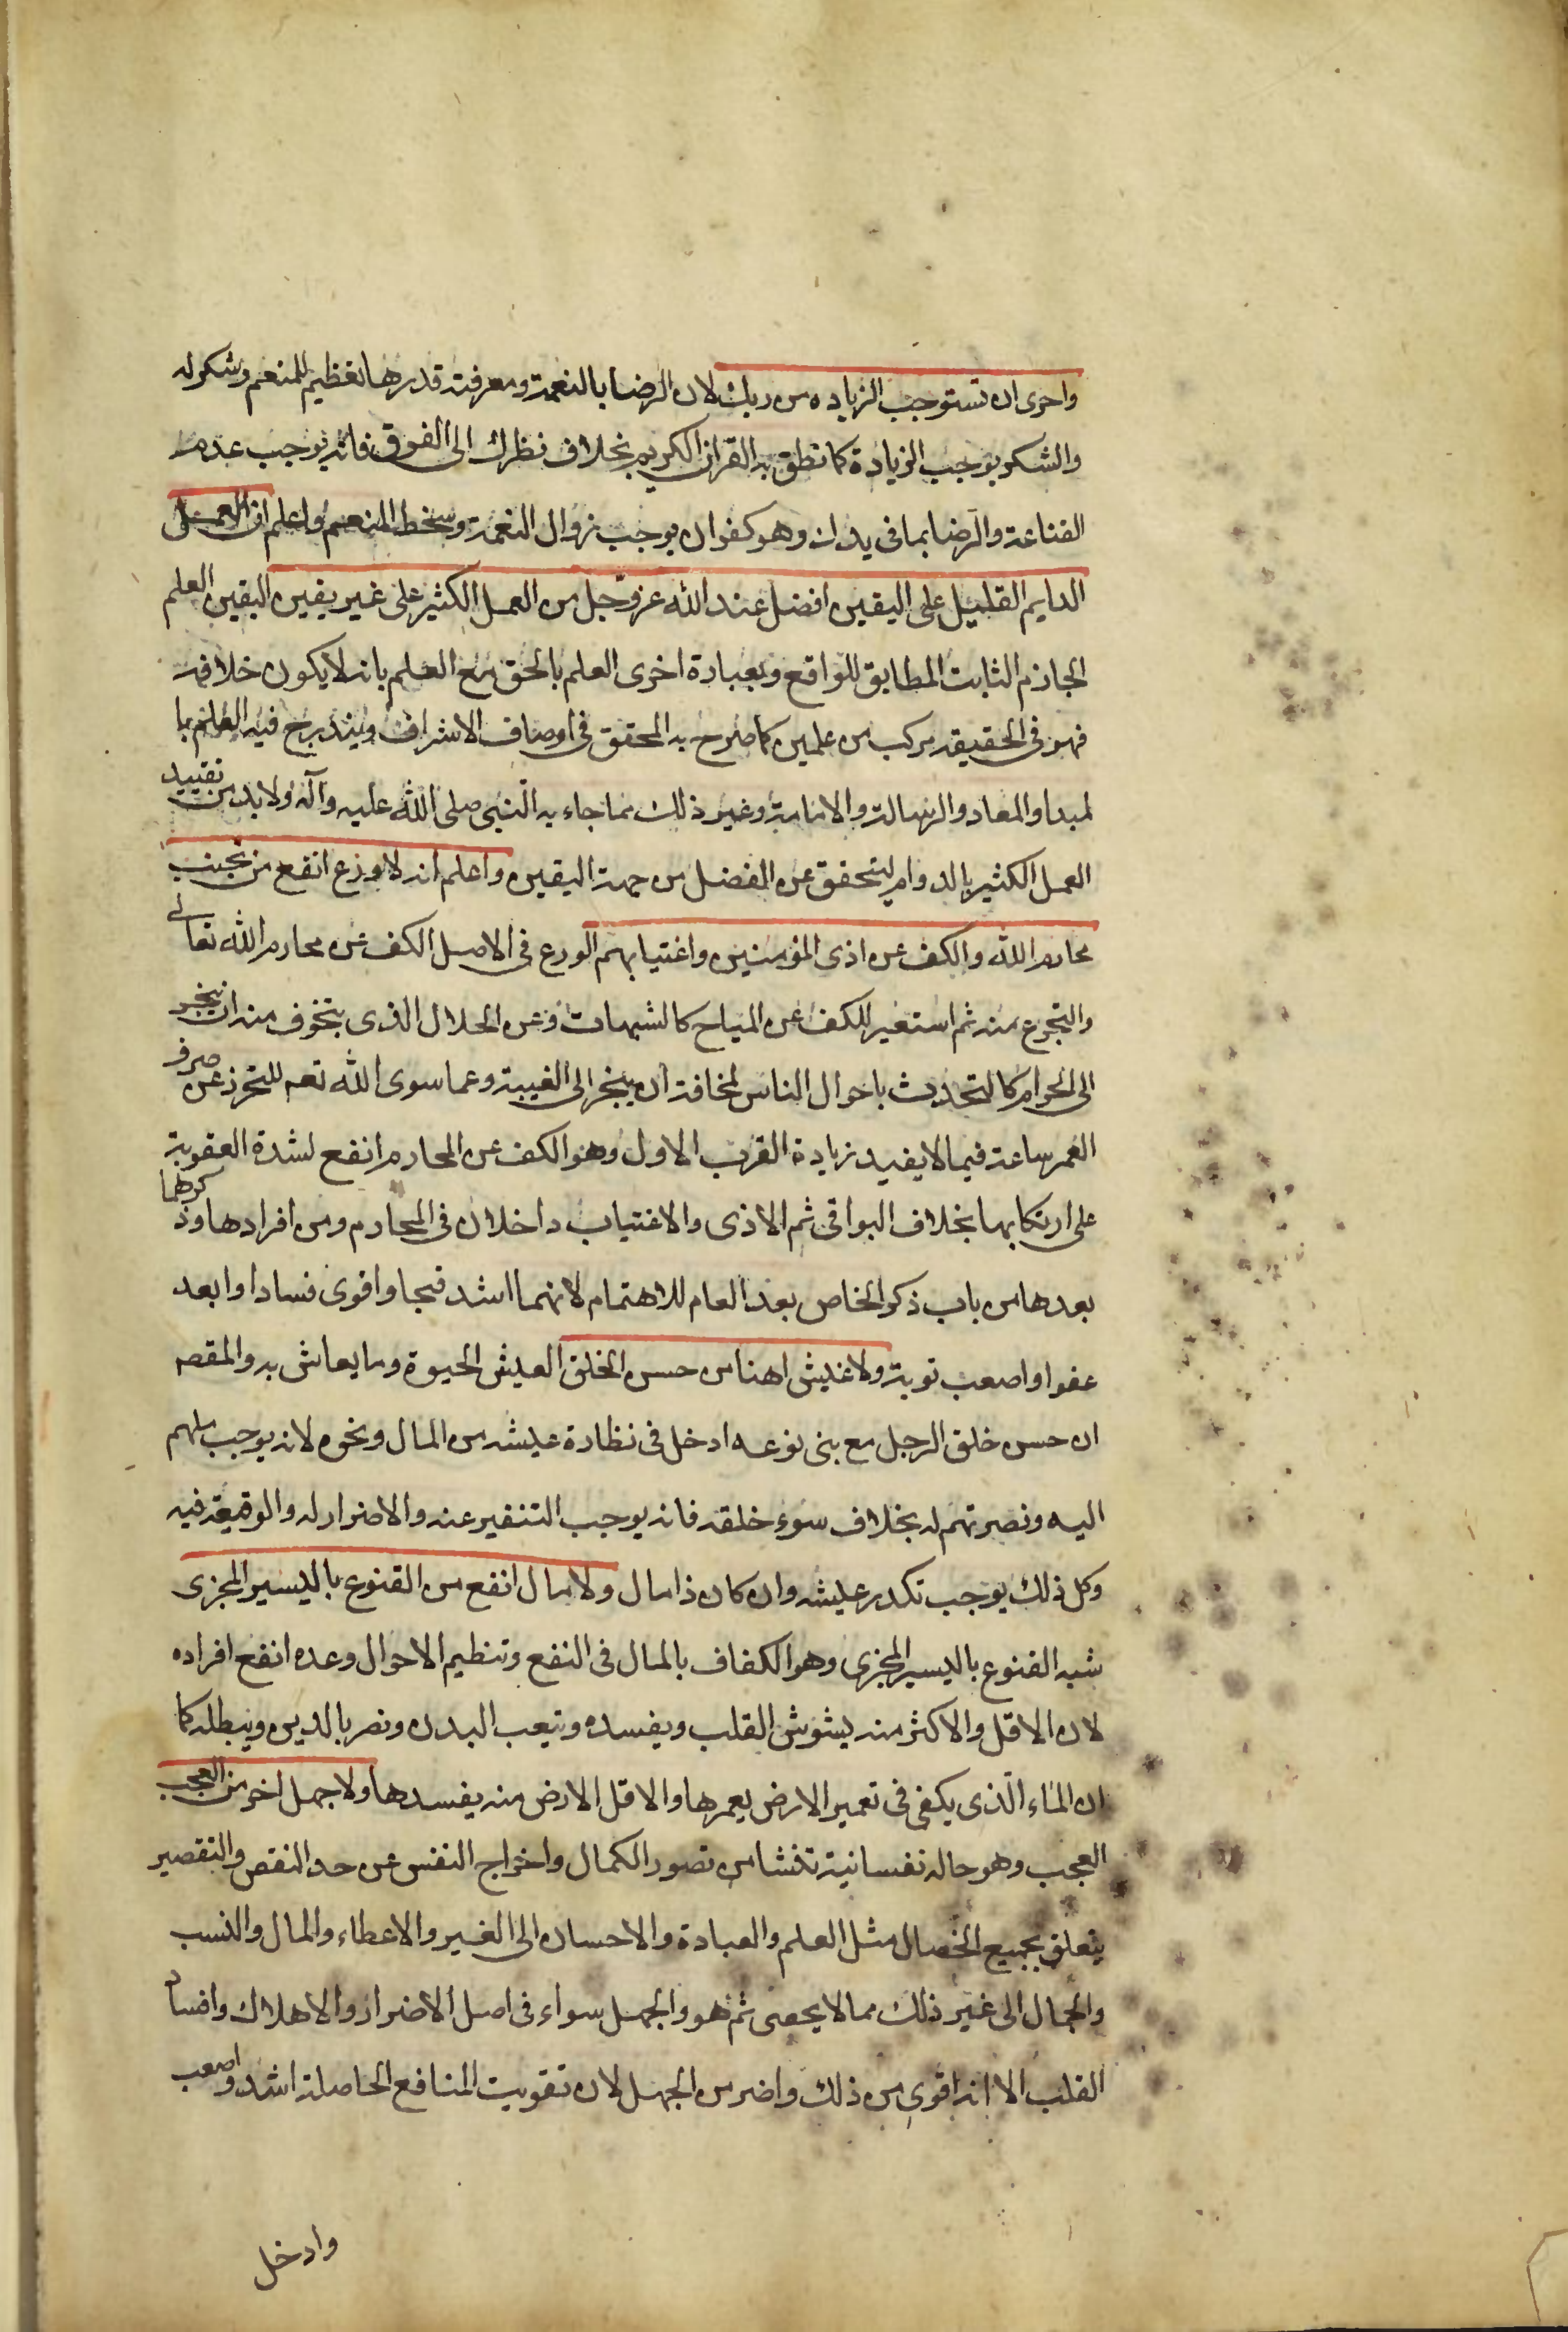 واحرى ان تستوجب الزياده من ربك لان الرضا بالنعمة ومعرفة قدرها تعظيم للمنعم وشكر له
والشكر يوجب الزيادة كما نطق به القران الكريم بخلاف نظرك الى الفوق فانه يوجب عدم
القناعة والرضا بما فى يدك وهو كفران يوجب زوال النعمة وسخط المنعم واعلم ان العمل
الدايم القليل على اليقين افضل عند الله عز وجل من العمل الكثير على غير يقين اليقين العلم
الجازم الثابت المطابق للواقع وبعبارة اخرى العلم بالحق مع العلم بانه لا يكون خلافه
فهو فى الحقيقة مركب من علمين كما صرح به المحقق فى اوصاف الاشراف ويندرج فيه العلم با
لمبدا والمعاد والرسالة والامامة وغير ذلك مما جاء به النبى صلى الله عليه وآله ولابد من تقييد
العمل الكثير بالدوام ليتحقق عن المفضل من جهة اليقين واعلم انه لا ورع انفع من تجنب
محارم الله والكف عن اذى المؤمنين واغتيابهم الورع فى الاصل الكف عن محارم الله تعالى
والتحرج منه ثم استعير للكف عن المباح كالشبهات وعن الحلال الذى يتخوف منه ان ينجر
الى الحرام كالتحدث باحوال الناس لمخافة ان ينجر الى الغيبة وعما سوى الله تعم للتحرز عن صرف
العمر ساعة فيما لا يفيد زيادة القرب الاول وهو الكف عن المحارم انفع لشدة العقوبة
على ارتكابها بخلاف البواقى ثم الاذى والاغتياب داخلان فى المحارم ومن افرادها وذكرهما
بعدها من باب ذكر الخاص بعد العام للاهتمام لانهما اشد قبحا واقوى فسادا وابعد
عفوا واصعب توبة ولا عيش اهنا من حسن الخلق العيش الحيوة وما يعاش به والمقصه
ان حسن خلق الرجل مع بنى نوعه ادخل فى نظارة عيشه من المال ونحوه لانه يوجب ميلهم
اليه ونصرتهم له بخلاف سوء خلقه فانه يوجب التنفير عنه والاضرار له والوقيعة فيه
وكل ذلك يوجب تكدر عيشه وان كان ذا مال ولا مال انفع من القنوع باليسير المجزى
شبه القنوع باليسير المجزى وهو الكفاف بالمال فى النفع وتنظيم الاحوال وعده انفع افراده
لان الاقل والاكثر منه يشوش القلب ويفسده ويتعب البدن ويضر بالدين ويبطله كما
ان الماء الذى يكفى فى تعمير الارض يعمرها والاقل الارض منه يفسدها ولا جهل اضر من العجب
العجب وهو حالة نفسانية تنشا من تصور الكمال واخراج النفس عن حد النقص والتقصير
يتعلق بجميع الخصال مثل العلم والعبادة والاحسان الى الغير والاعطاء والمال والنسب
والجمال الى غير ذلك مما لا يحصى ثم هو والجهل سواء فى اصل الاضرار والاهلاك وافساد
القلب الا انه اقوى من ذلك واضر من الجهل لان تفويت المنافع الحاصلة اشد واصعب
وادخل